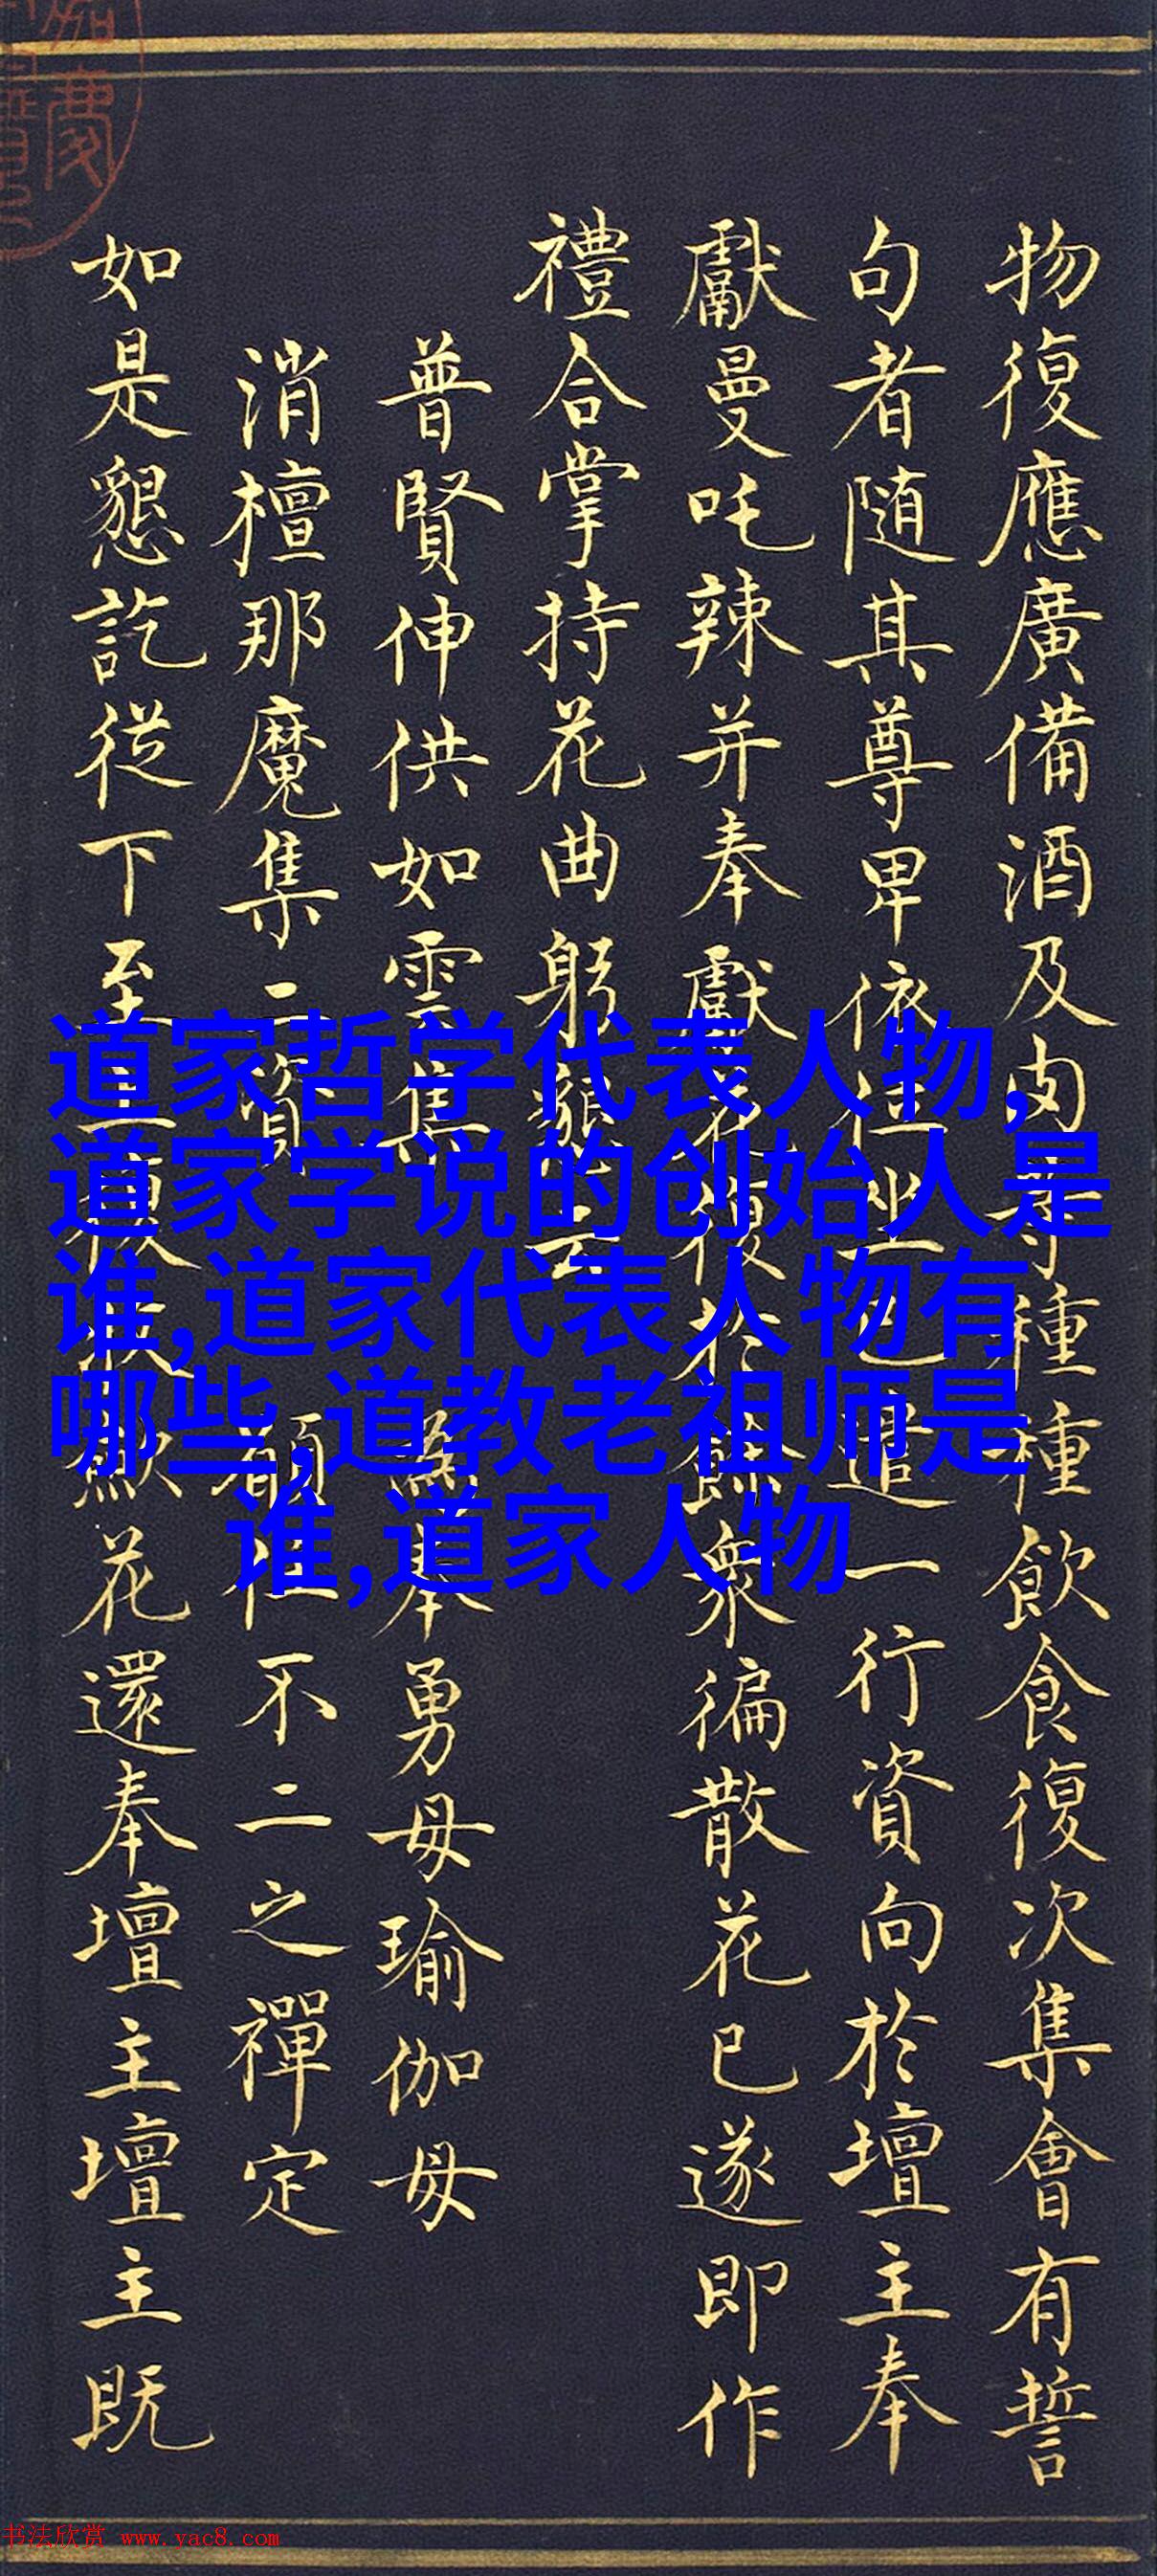 物復應廣備酒及肉等種種飲食復次集會有誓
句者随其尊卑依位坐已遣一行資向於壇主奉
獻曼吒辣并奉獻花復於餘衆徧散花已遂即作
禮合掌持花曲躬貌云
普賢伸供如雲集 奉勇母瑜伽母
消檀那魔集二資 願住不二之禪定
如是懇訖從下至花還奉壇主壇主既
道家哲学代表人物,
道家学说的创始人是
谁,道家代表人物有
哪些,道教老祖师是
谁,道家人物
书法欣赏 www.yac8.com